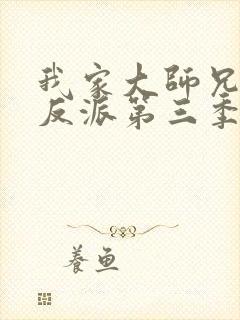 我家大師兄
反派第三季
養魚